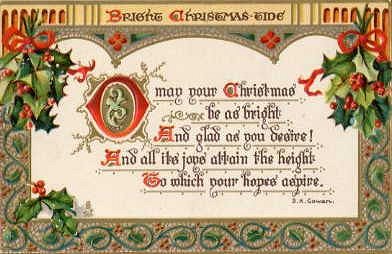 Bright Christmas-tide
O may your Christmas
be as bright
And glad as you desire!
And all its joys attain the height
To which your hopes aspire.
S. K. Cowan.